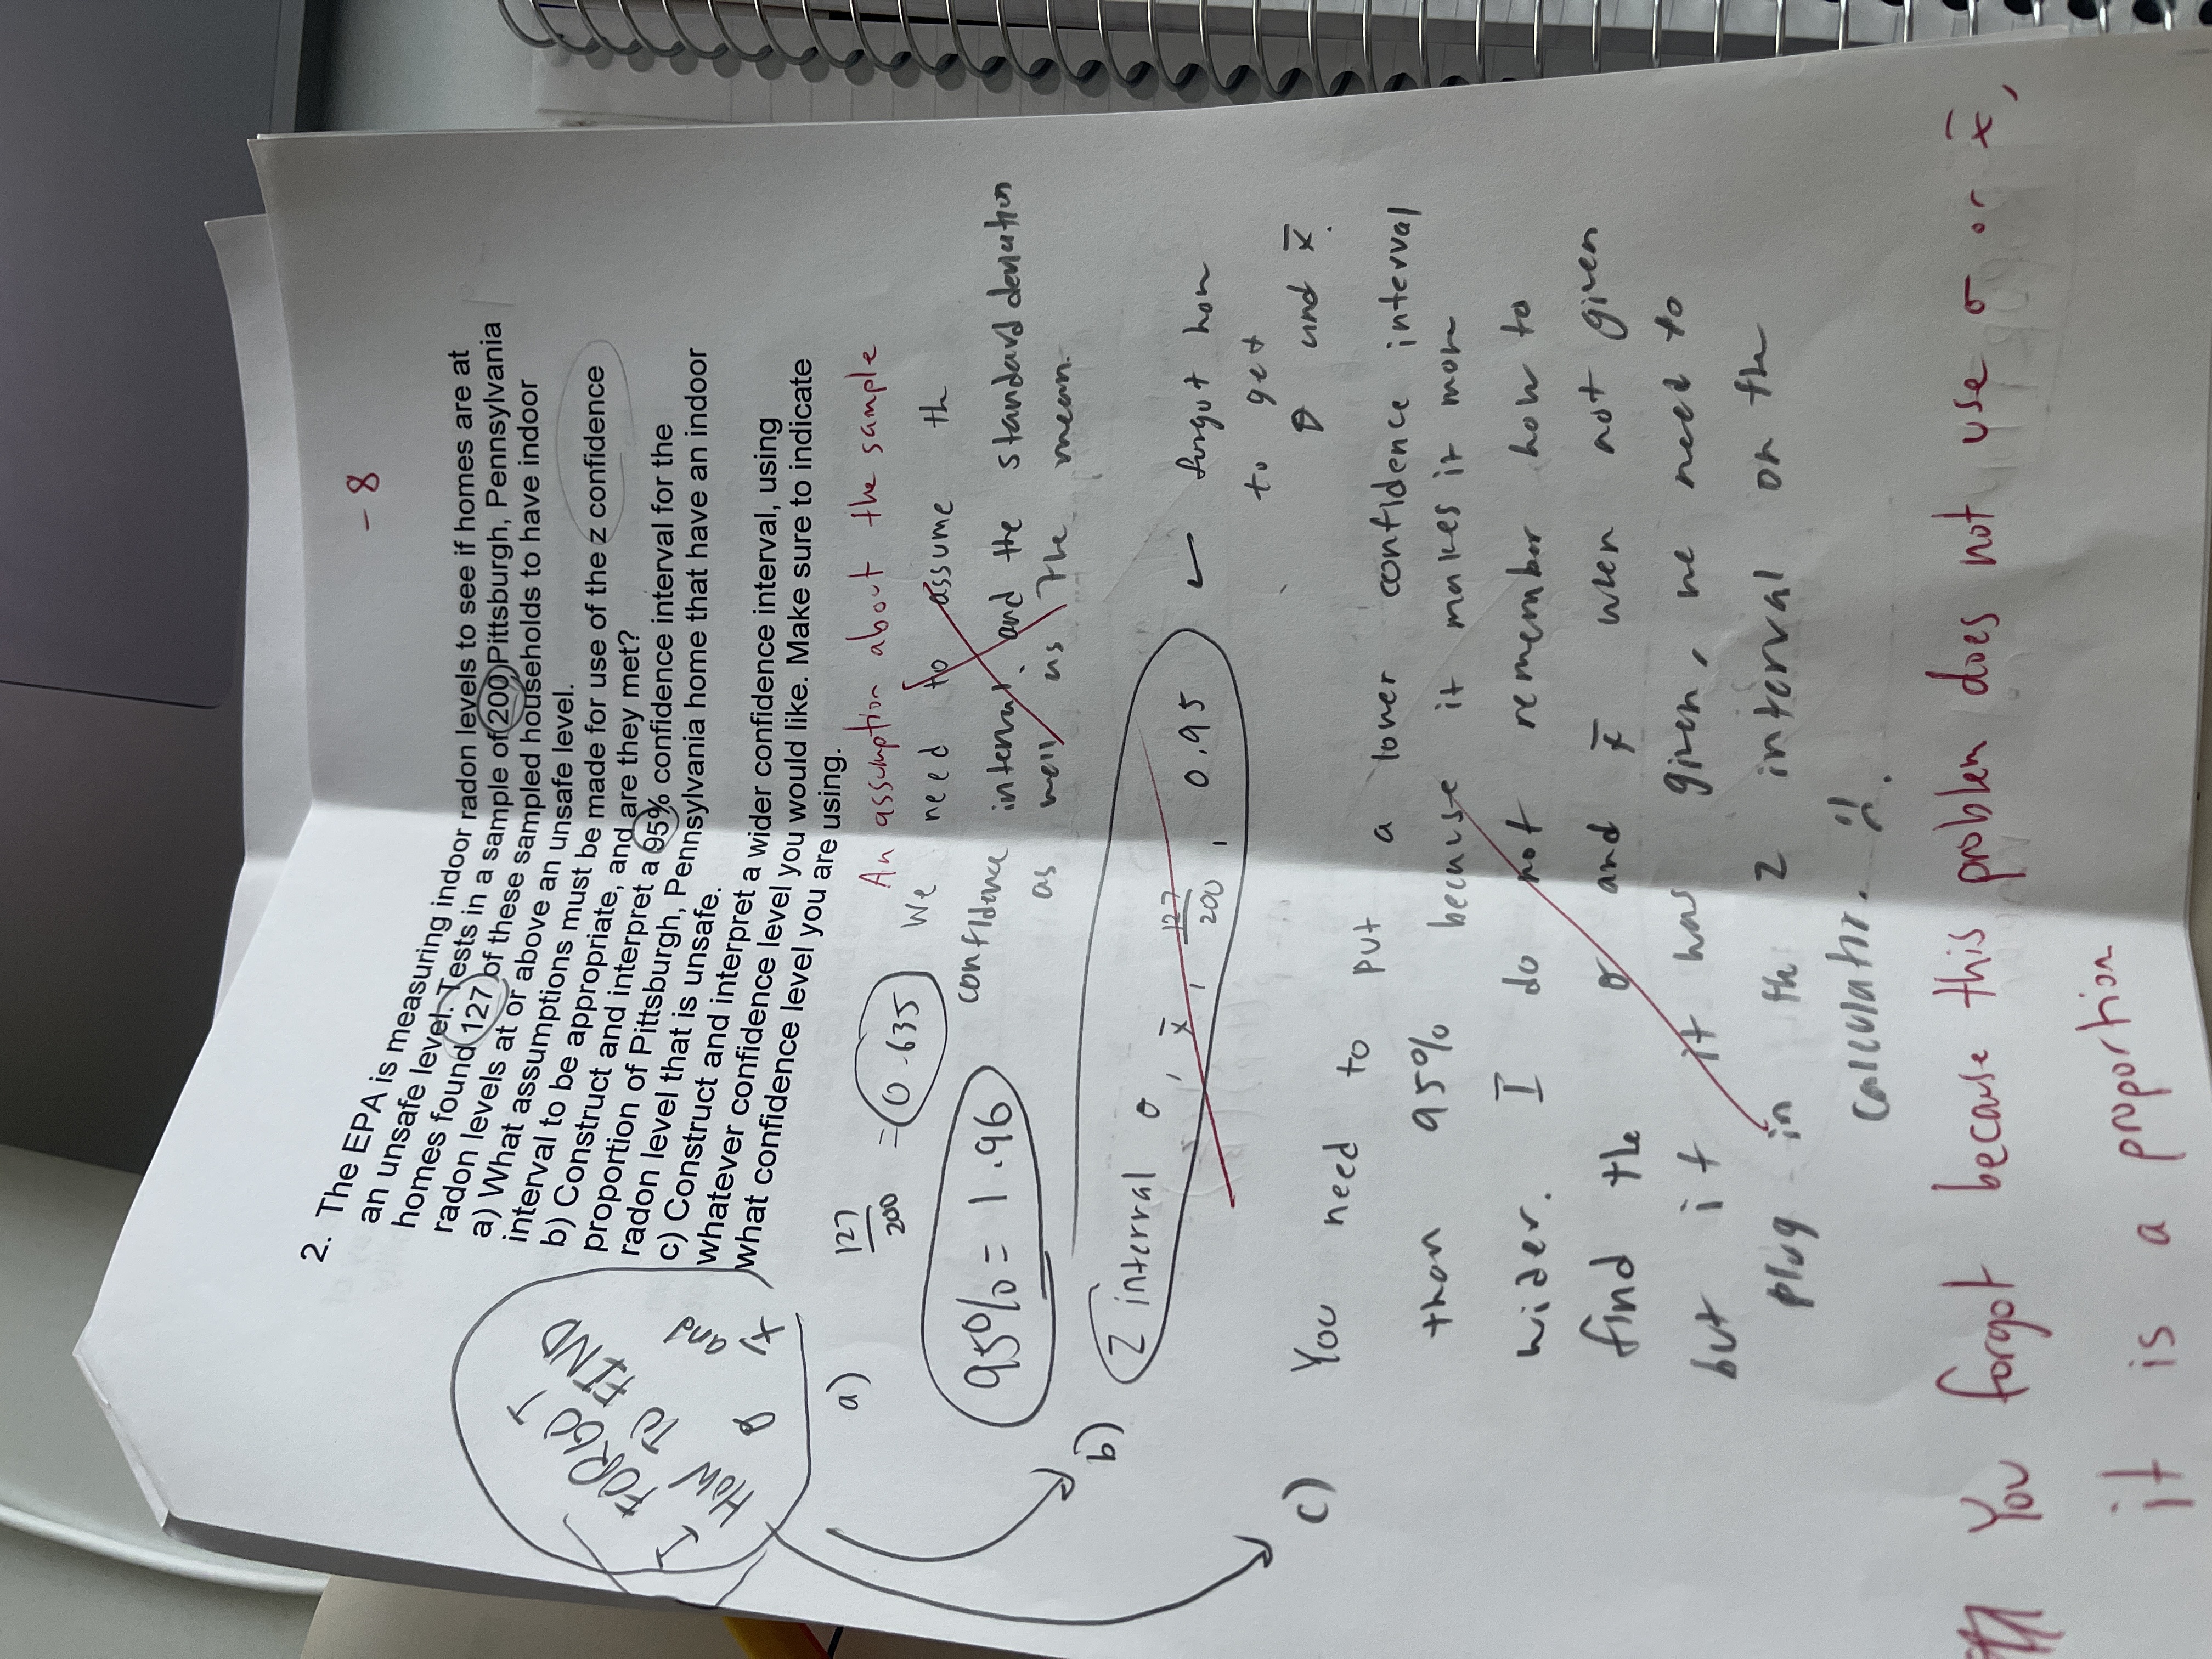 - 8
2. The EPA is measuring indoor radon levels to see if homes are at
an unsafe level. Tests in a sample of 200 Pittsburgh, Pennsylvania
homes found 127 of these sampled households to have indoor
radon levels at or above an unsafe level.
a) What assumptions must be made for use of the z confidence
interval to be appropriate, and are they met?
b) Construct and interpret a 95% confidence interval for the
proportion of Pittsburgh, Pennsylvania home that have an indoor
radon level that is unsafe.
c) Construct and interpret a wider confidence interval, using
whatever confidence level you would like. Make sure to indicate
what confidence level you are using.
I FORGOT
HOW TO FIND
σ and x̄
An assumption about the sample
a) 127/200 = 0.635
We need to assume th
confidence interval and the standard deviation
as well as the mean.
95% = 1.96
b) Z interval σ, x̄, 127/200, 0.95 ← forgot how
to get
σ and x̄.
c) You need to put a lower confidence interval
than 95% because it makes it more
wider. I do not remember how to
find the σ and x̄ when not given
but if it was given, we need to
plug in the Z interval on the
calculator.
You forgot because this problem does not use σ or x̄,
it is a proportion